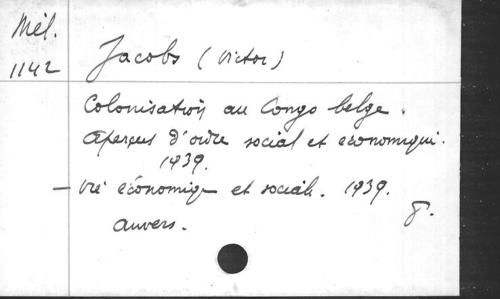 Mél.
1142
Jacobs (Victor)
Colonisation au Congo belge.
Aperçus d'ordre social et economique.
1939.
— Vie économique et sociale. 1939.
8°.
Anvers.